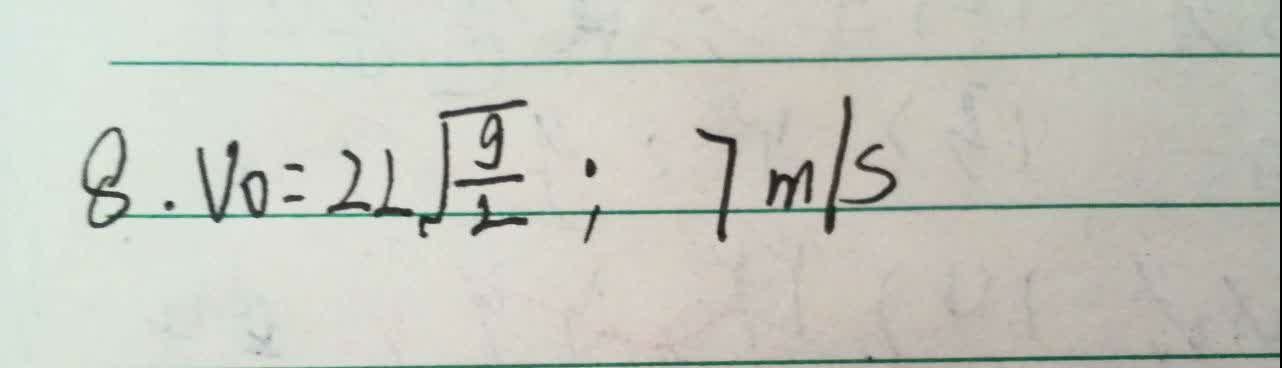 8. V₀=2L√(g/2); 7m/s